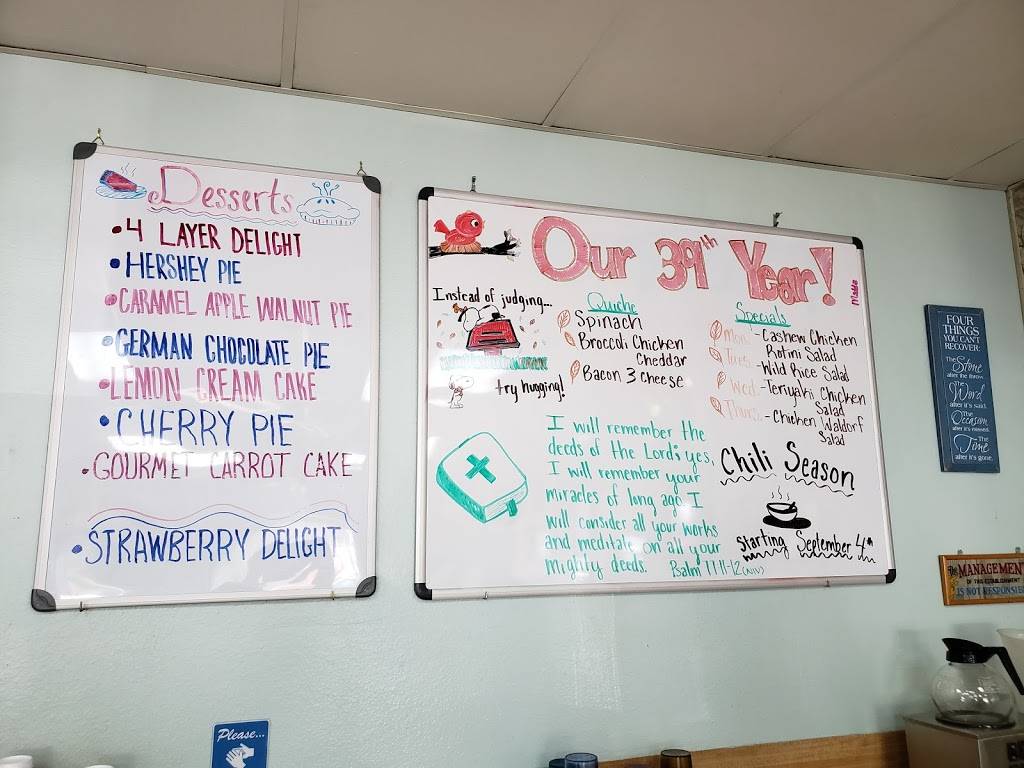 Desserts
• 4 LAYER DELIGHT
• HERSHEY PIE
• CARAMEL APPLE WALNUT PIE
• GERMAN CHOCOLATE PIE
• LEMON CREAM CAKE
• CHERRY PIE
• GOURMET CARROT CAKE
• STRAWBERRY DELIGHT
Our 39th Year!
Instead of judging...
try hugging!
Quiche
Spinach
Broccoli Chicken
Cheddar
Bacon 3 Cheese
Specials
Mon. - Cashew Chicken
Rotini Salad
Tues. - Wild Rice Salad
Wed. - Teriyaki Chicken
Salad
Thurs. - Chicken Waldorf
Salad
I will remember the
deeds of the Lord; yes,
I will remember your
miracles of long ago I
will consider all your works
and meditate on all your
mighty deeds. Psalm 77:11-12 (NIV)
Chili Season
Starting September 4th
FOUR
THINGS
YOU CAN'T
RECOVER:
The Stone
after it's thrown.
The Word
after it's said.
The Occasion
after it's missed.
The Time
after it's gone.
The MANAGEMENT
OF THIS ESTABLISHMENT
IS NOT RESPONSIB
Please...